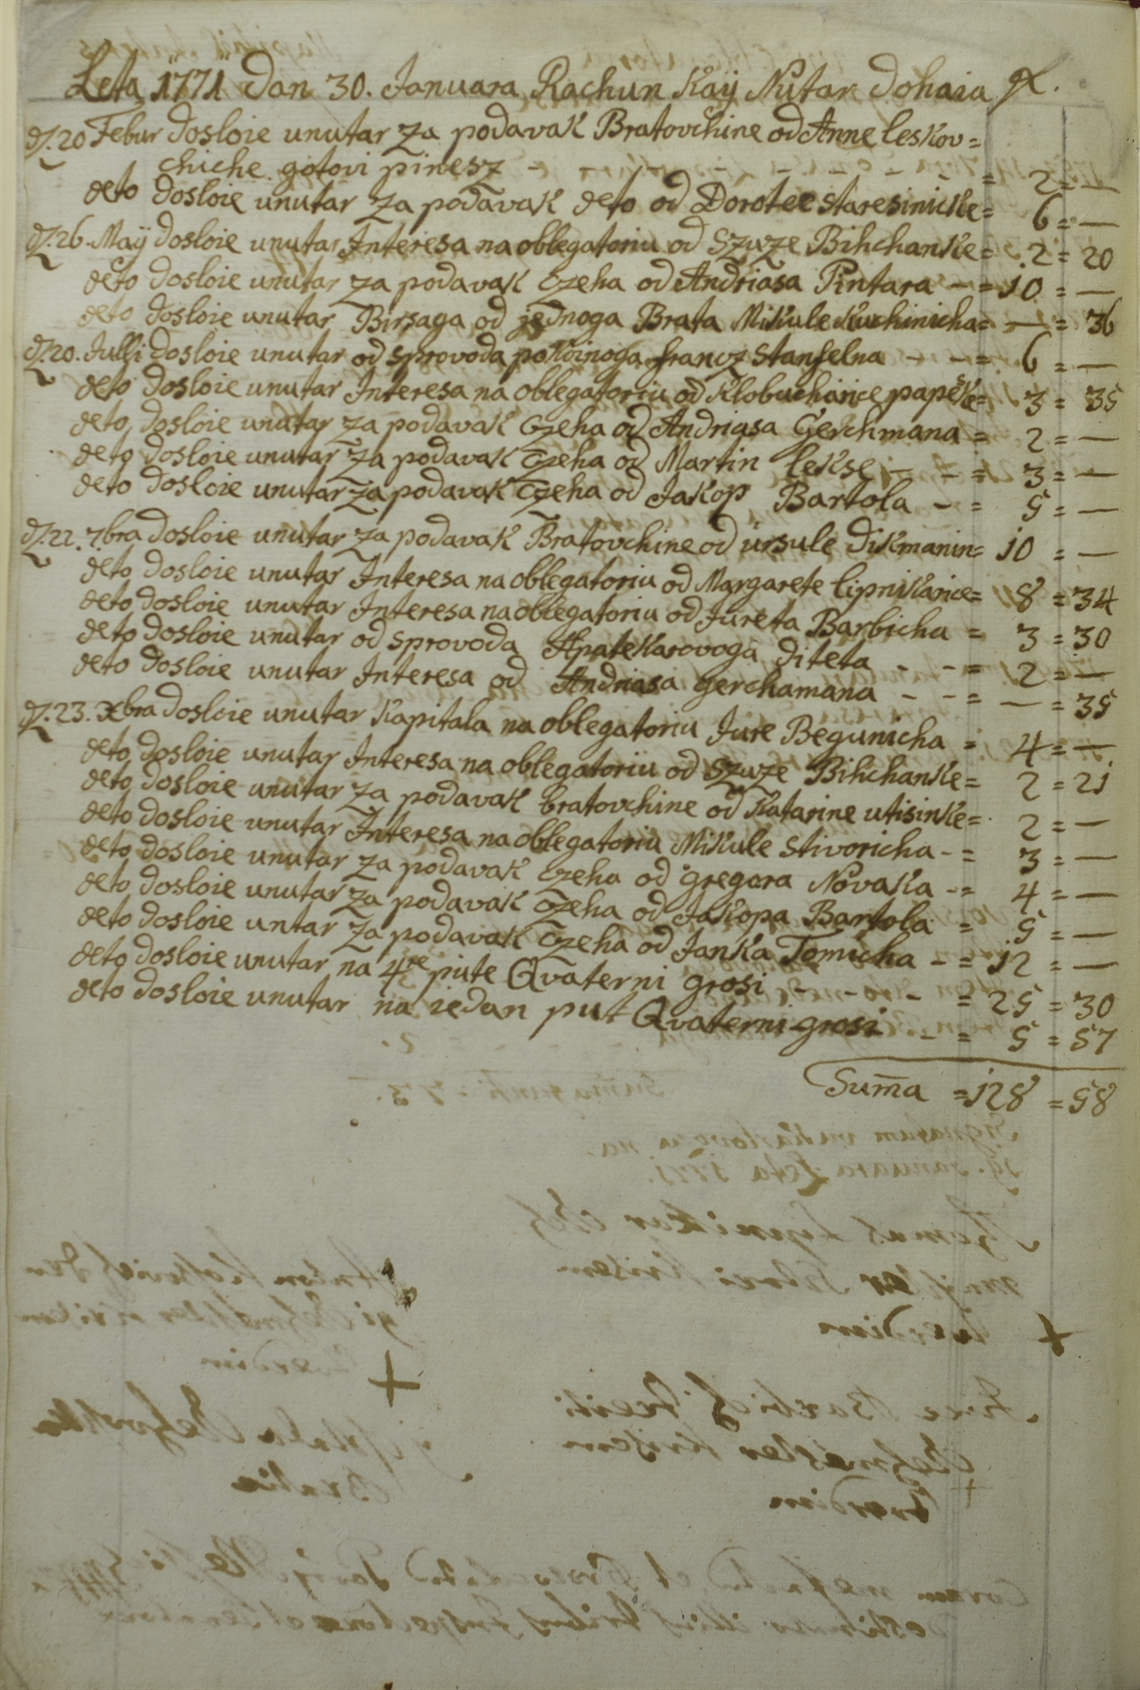 Leta 1771 Dan 30. Januara Rachun Kaÿ Nutar dohaia
D. 20 Febur dosloie unutar za podavak Bratovchine od Anne leskov=
chiche gotovi pinesz - - - - - = 2 = —
deto dosloie unutar za podavak deto od Dorotee staresinicke = 6 = —
D. 26. Maÿ dosloie unutar Interesa na oblegatoriu od Szuze Bihchanke = 2 = 20
deto dosloie unutar za podavak Czeha od Andriasa Pintara - = 10 = —
deto dosloie unutar Birsaga od jednoga Brata Mikule Kuchinicha = — = 36
D. 20. Julli dosloie unutar od sprovoda pokoinoga francz Stanfelna - - = 6 = —
deto dosloie unutar Interesa na oblegatoriu od Klobucharice papeske = 3 = 35
deto dosloie unutar za podavak Czeha od Andriasa Gerchmana = 2 = —
deto dosloie unutar za podavak Czeha od Martin lekse - - = 3 = —
deto dosloie unutar za podavak Czeha od Jakop Bartola - = 5 = —
D. 22. 7bra dosloie unutar za podavak Bratovchine od ursule Dikmanin = 10 = —
deto dosloie unutar Interesa na oblegatoriu od Margarete lipnikarice = 8 = 34
deto dosloie unutar Interesa na oblegatoriu od Jureta Barbicha = 3 = 30
deto dosloie unutar od sprovoda Apatekarovoga diteta - - = 2 = —
deto dosloie unutar Interesa od Andriasa gerchamana - - = — = 35
D. 23. Xbra dosloie unutar Kapitala na oblegatoriu Jure Begunicha = 4 = —
deto dosloie unutar Interesa na oblegatoriu od Szuze Bihchanke = 2 = 21
deto dosloie unutar za podavak bratovchine od Katarine utisinke = 2 = —
deto dosloie unutar Interesa na oblegatoriu Mikule Stivoricha - = 3 = —
deto dosloie unutar za podavak Czeha od gregora Novaka - = 4 = —
deto dosloie unutar za podavak Czeha od Jakopa Bartola = 5 = —
deto dosloie untar za podavak Czeha od Janka Tomicha - = 12 = —
deto dosloie unutar na 4re pute Qvaterni grosi - - - = 25 = 30
deto dosloie unutar na iedan put Qvaterni grosi - = 5 = 57
Sum̄a = 128 = 58